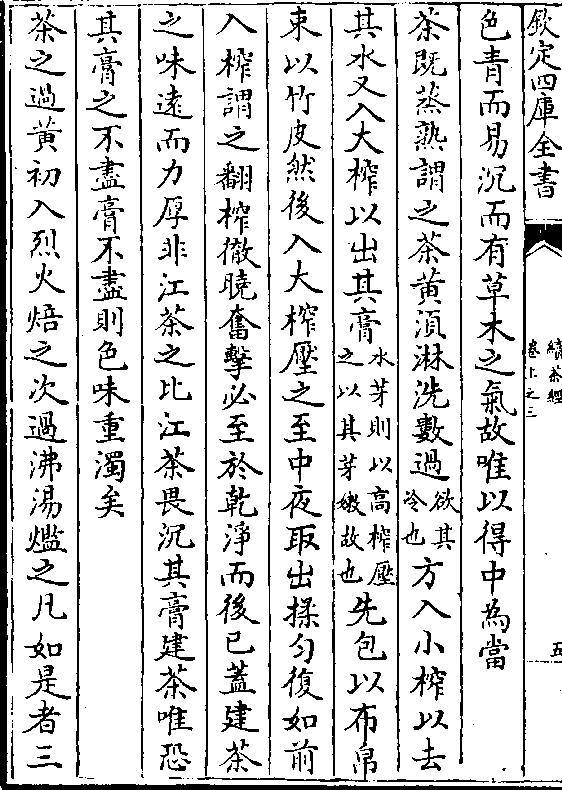 欽定四庫全書
續茶經
卷上之三
五
色青而易沉而有草木之氣故唯以得中為當
茶既蒸熟謂之茶黄湏淋洗數過欲其冷也方入小榨以去
其水又入大榨以出其膏水芽則以高榨壓之以其芽嫩故也先包以布帛
束以竹皮然後入大榨壓之至中夜取出揉匀復如前
入榨謂之翻榨徹曉奮擊必至於乾淨而後已蓋建茶
之味遠而力厚非江茶之比江茶畏沉其膏建茶唯恐
其膏之不盡膏不盡則色味重濁矣
茶之過黄初入烈火焙之次過沸湯爁之凡如是者三